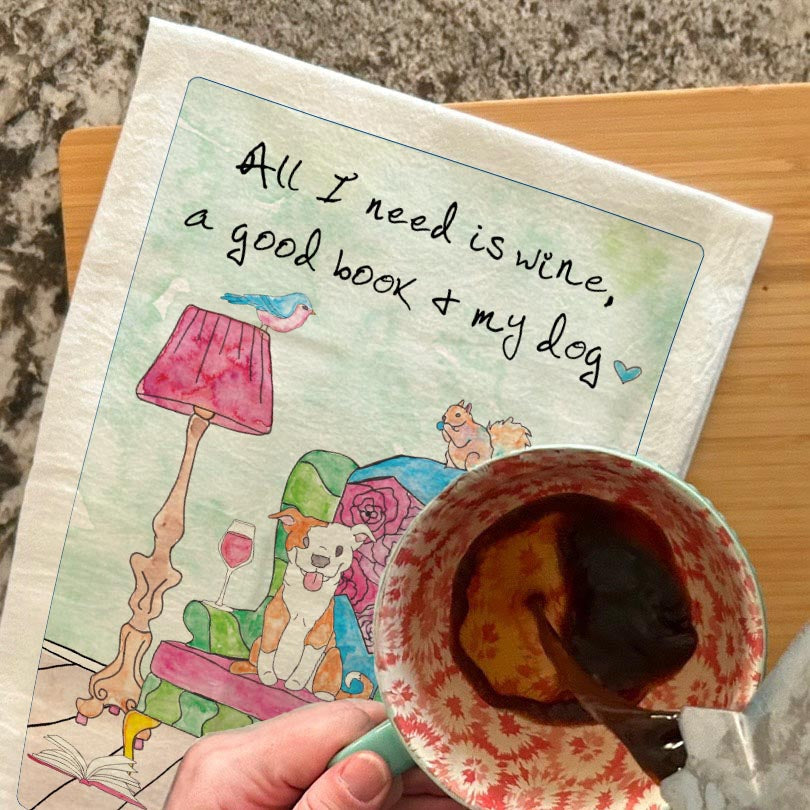 All I need is wine,
a good book + my dog